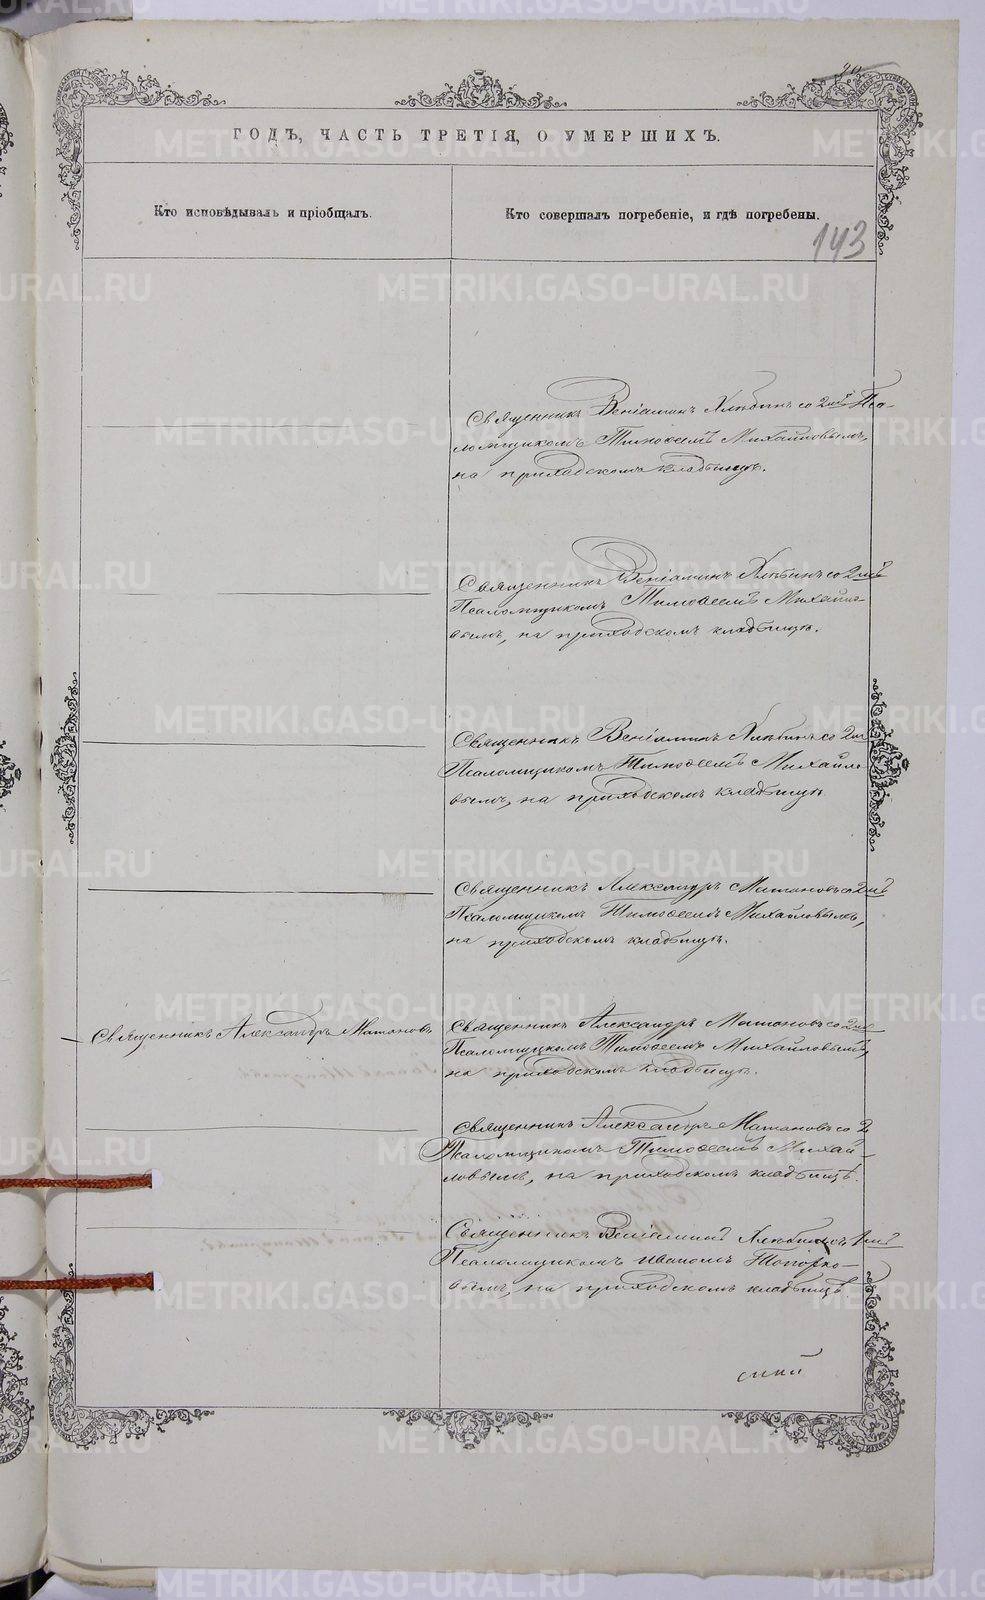 ГОДЪ, ЧАСТЬ ТРЕТІЯ, О УМЕРШИХЪ.
Кто исповѣдывалъ и пріобщалъ.
Кто совершалъ погребеніе, и гдѣ погребены.
143
Священникъ Веніаминъ Хлѣбинъ со 2мъ Пса-
ломщикомъ Тимоѳеемъ Михайловымъ,
на приходскомъ кладбищѣ.
Священникъ Веніаминъ Хлѣбинъ со 2мъ
Псаломщикомъ Тимоѳеемъ Михайло-
вымъ, на приходскомъ кладбищѣ.
Священникъ Веніаминъ Хлѣбинъ со 2мъ
Псаломщикомъ Тимоѳеемъ Михайло-
вымъ, на приходскомъ кладбищѣ
Священникъ Александръ Матановъ со 2мъ
Псаломщикомъ Тимоѳеемъ Михайловымъ,
на приходскомъ кладбищѣ.
Священникъ Александръ Матановъ
Священникъ Александръ Матановъ со 2мъ
Псаломщикомъ Тимоѳеемъ Михайловымъ,
на приходскомъ кладбищѣ.
Священникъ Александръ Матановъ со 2
Псаломщикомъ Тимоѳеемъ Михай-
ловымъ, на приходскомъ кладбищѣ.
Священникъ Веніаминъ Хлѣбинъ съ 1мъ
Псаломщикомъ Иваномъ Топорко-
вымъ, на приходскомъ кладбищѣ.
METRIKI.GASO-URAL.RU